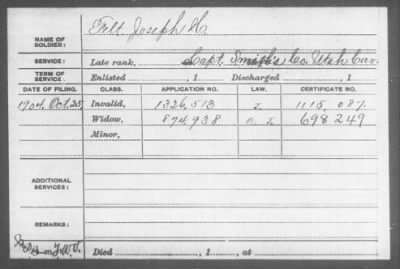 NAME OF SOLDIER: Felt, Joseph H.
SERVICE: Late rank, Capt. Smith's Co. Utah Cav.
TERM OF SERVICE: Enlisted , 1 Discharged , 1
DATE OF FILING. CLASS. APPLICATION NO. LAW. CERTIFICATE NO.
1904, Oct. 25 Invalid, 1326,513 1115,087
Widow, 874,938 698249
Minor,
ADDITIONAL SERVICES:
REMARKS:
Died , 1 , at